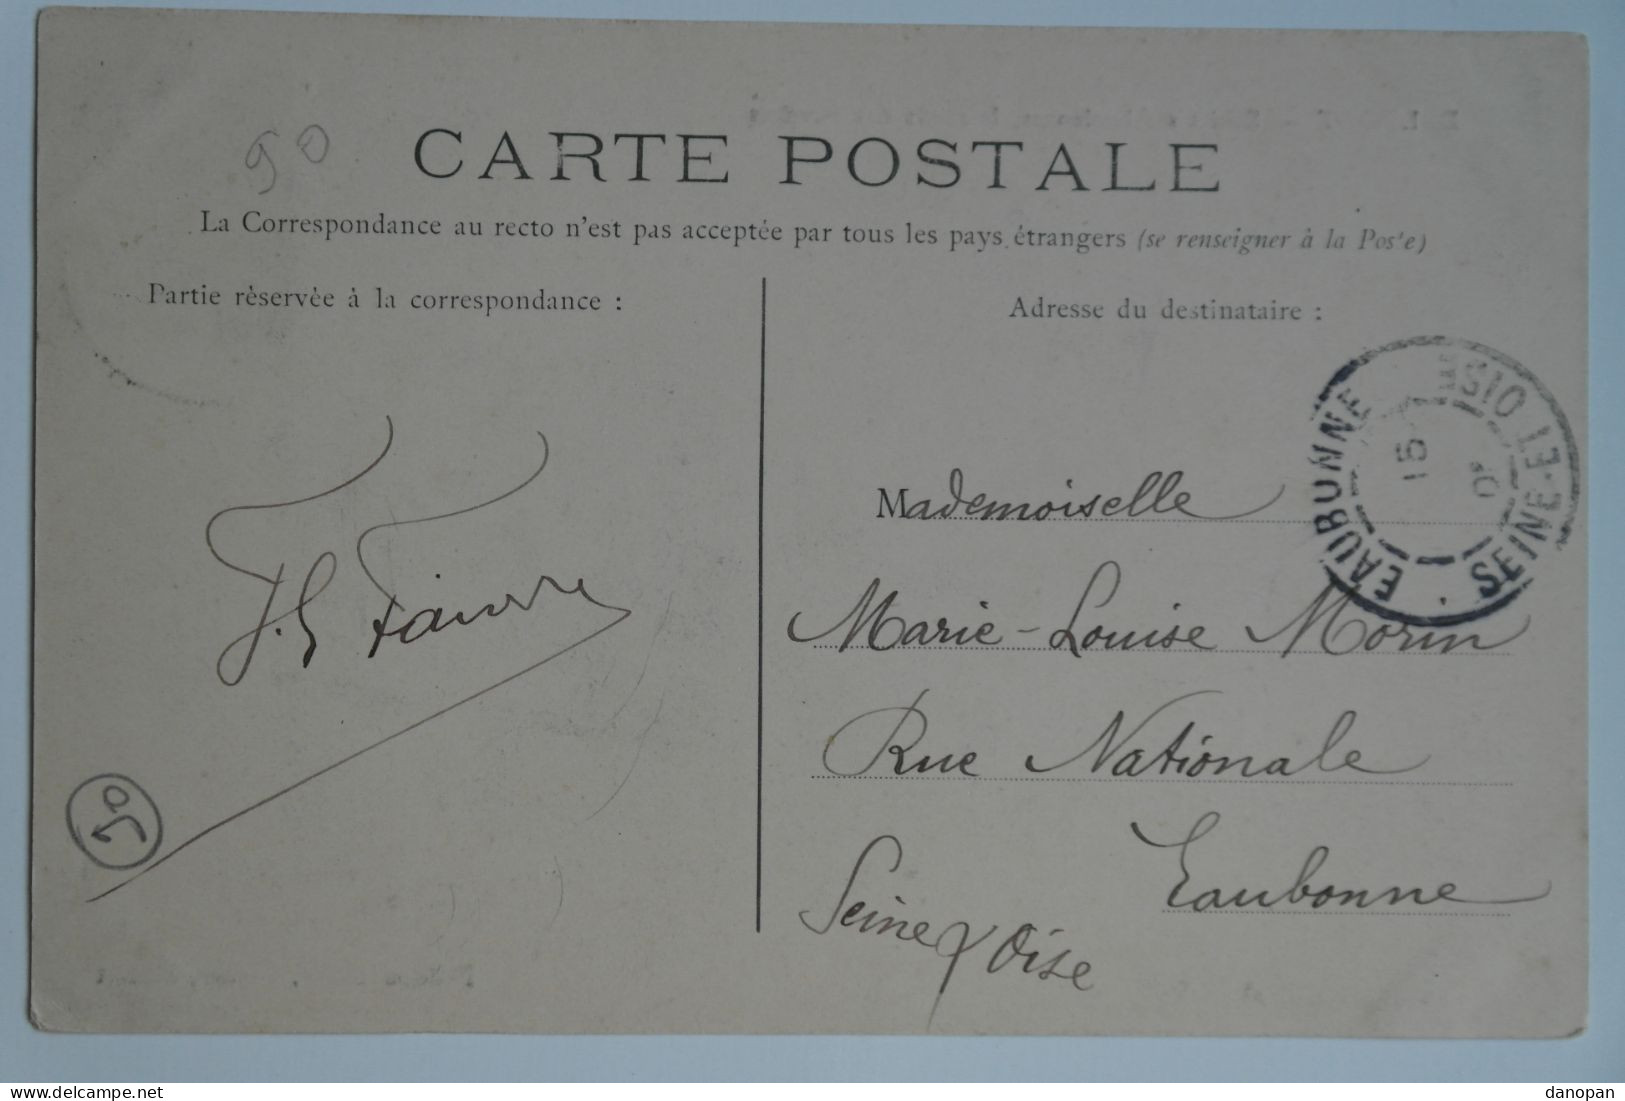 CARTE POSTALE
La Correspondance au recto n'est pas acceptée par tous les pays étrangers (se renseigner à la Pos'e)
Partie réservée à la correspondance :
Adresse du destinataire :
EAUBONNE
SEINE-ET-OISE
15
Mademoiselle
Marie-Louise Morin
Rue Nationale
Eaubonne
Seine & Oise
50
delcampe.net
danopan